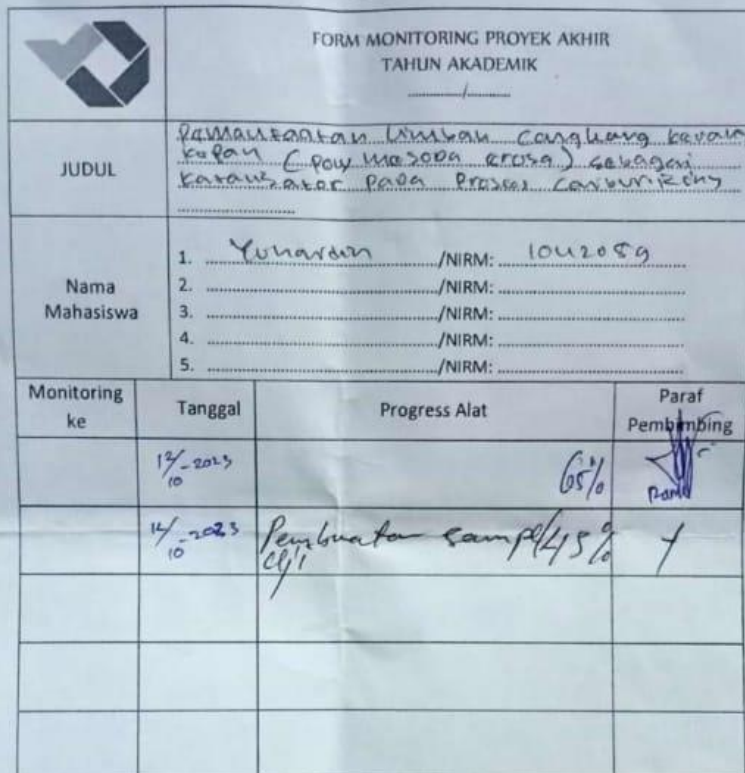 FORM MONITORING PROYEK AKHIR
TAHUN AKADEMIK
............/............
JUDUL
Pamanfaatan Limbah Cangkang kerang
kapah (poly mesoda erosa) sebagai
Katalisator Pada Proses Carburizing
Nama
Mahasiswa
1. Yunardin /NIRM: 1042059
2. /NIRM:
3. /NIRM:
4. /NIRM:
5. /NIRM:
Monitoring ke Tanggal Progress Alat Paraf Pembimbing
12/10-2023 65%
14/10-2023 Pembuatan sampel 45%
uji